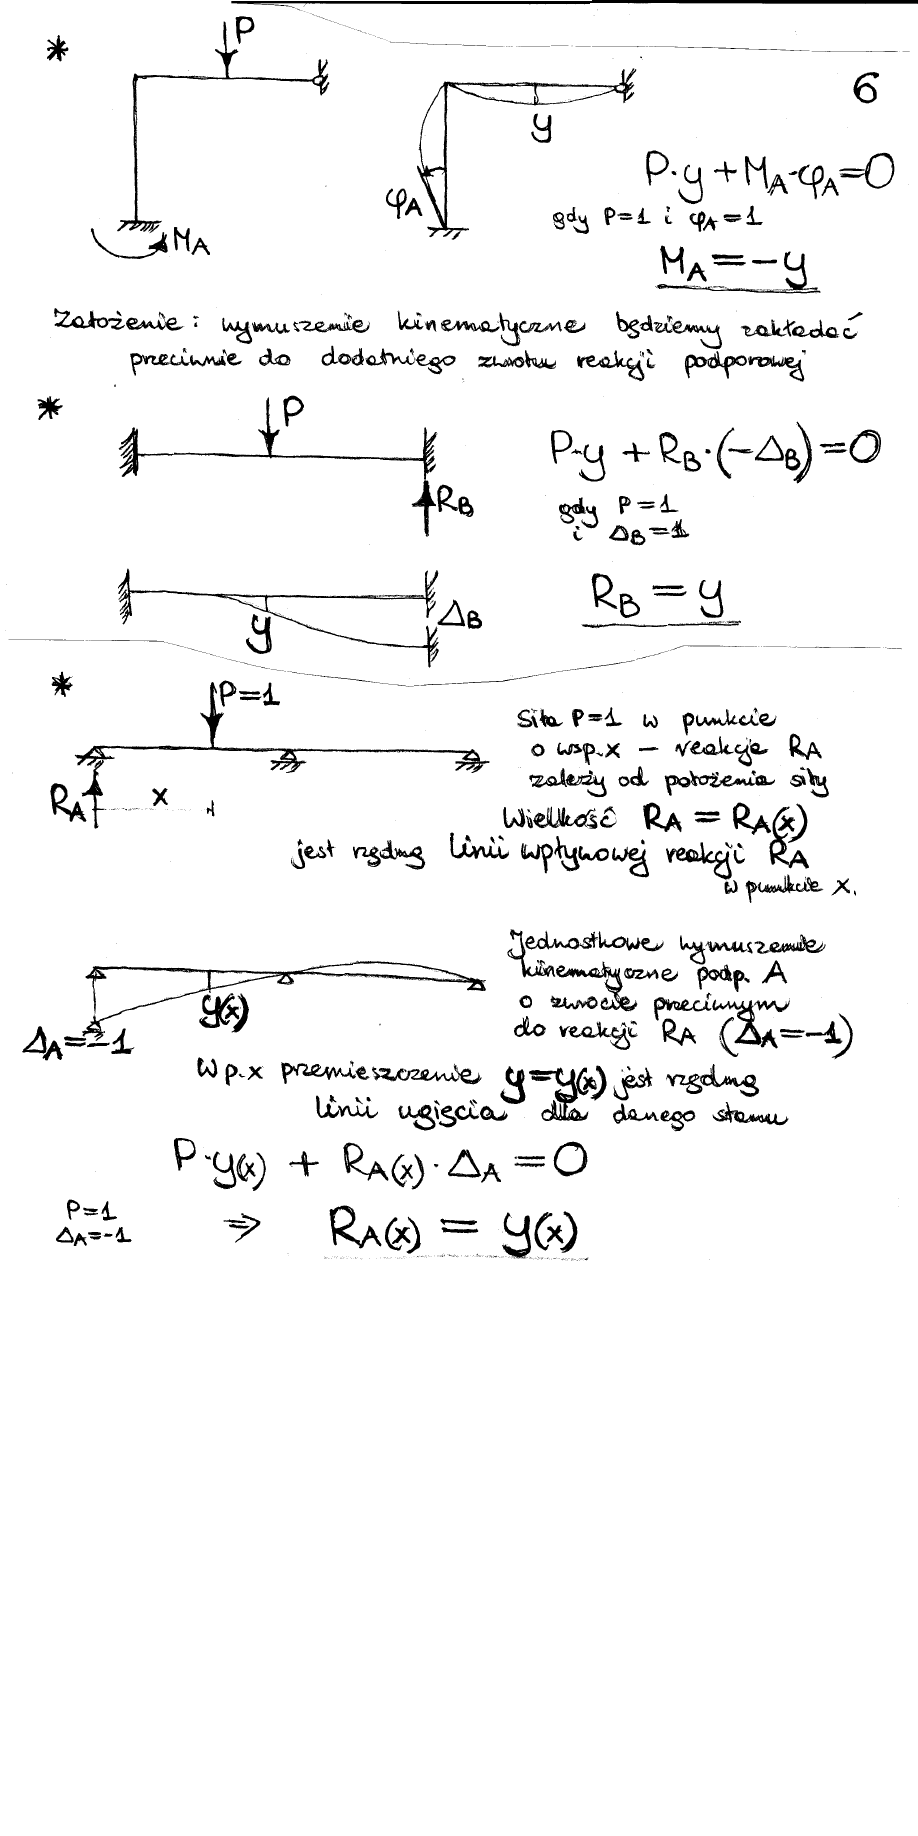 * P
6
y
φA
MA
P·y + MA·φA = 0
gdy P=1 i φA=1
MA = -y
Założenie: wymuszenie kinematyczne będziemy zakładać
przeciwnie do dodatniego zwrotu reakcji podporowej
* P
RB
P·y + RB·(-ΔB) = 0
gdy P=1
i ΔB=1
y
ΔB
RB = y
* P=1
RA
x
Siła P=1 w punkcie
o wsp. x – reakcja RA
zależy od położenia siły
Wielkość RA = RA(x)
jest rzędną linii wpływowej reakcji RA
w punkcie x.
y(x)
ΔA=-1
Jednostkowe wymuszenie
kinematyczne podp. A
o zwrocie przeciwnym
do reakcji RA (ΔA=-1)
W p.x przemieszczenie y=y(x) jest rzędną
linii ugięcia dla danego stanu
P·y(x) + RA(x)·ΔA = 0
P=1
ΔA=-1
⇒ RA(x) = y(x)